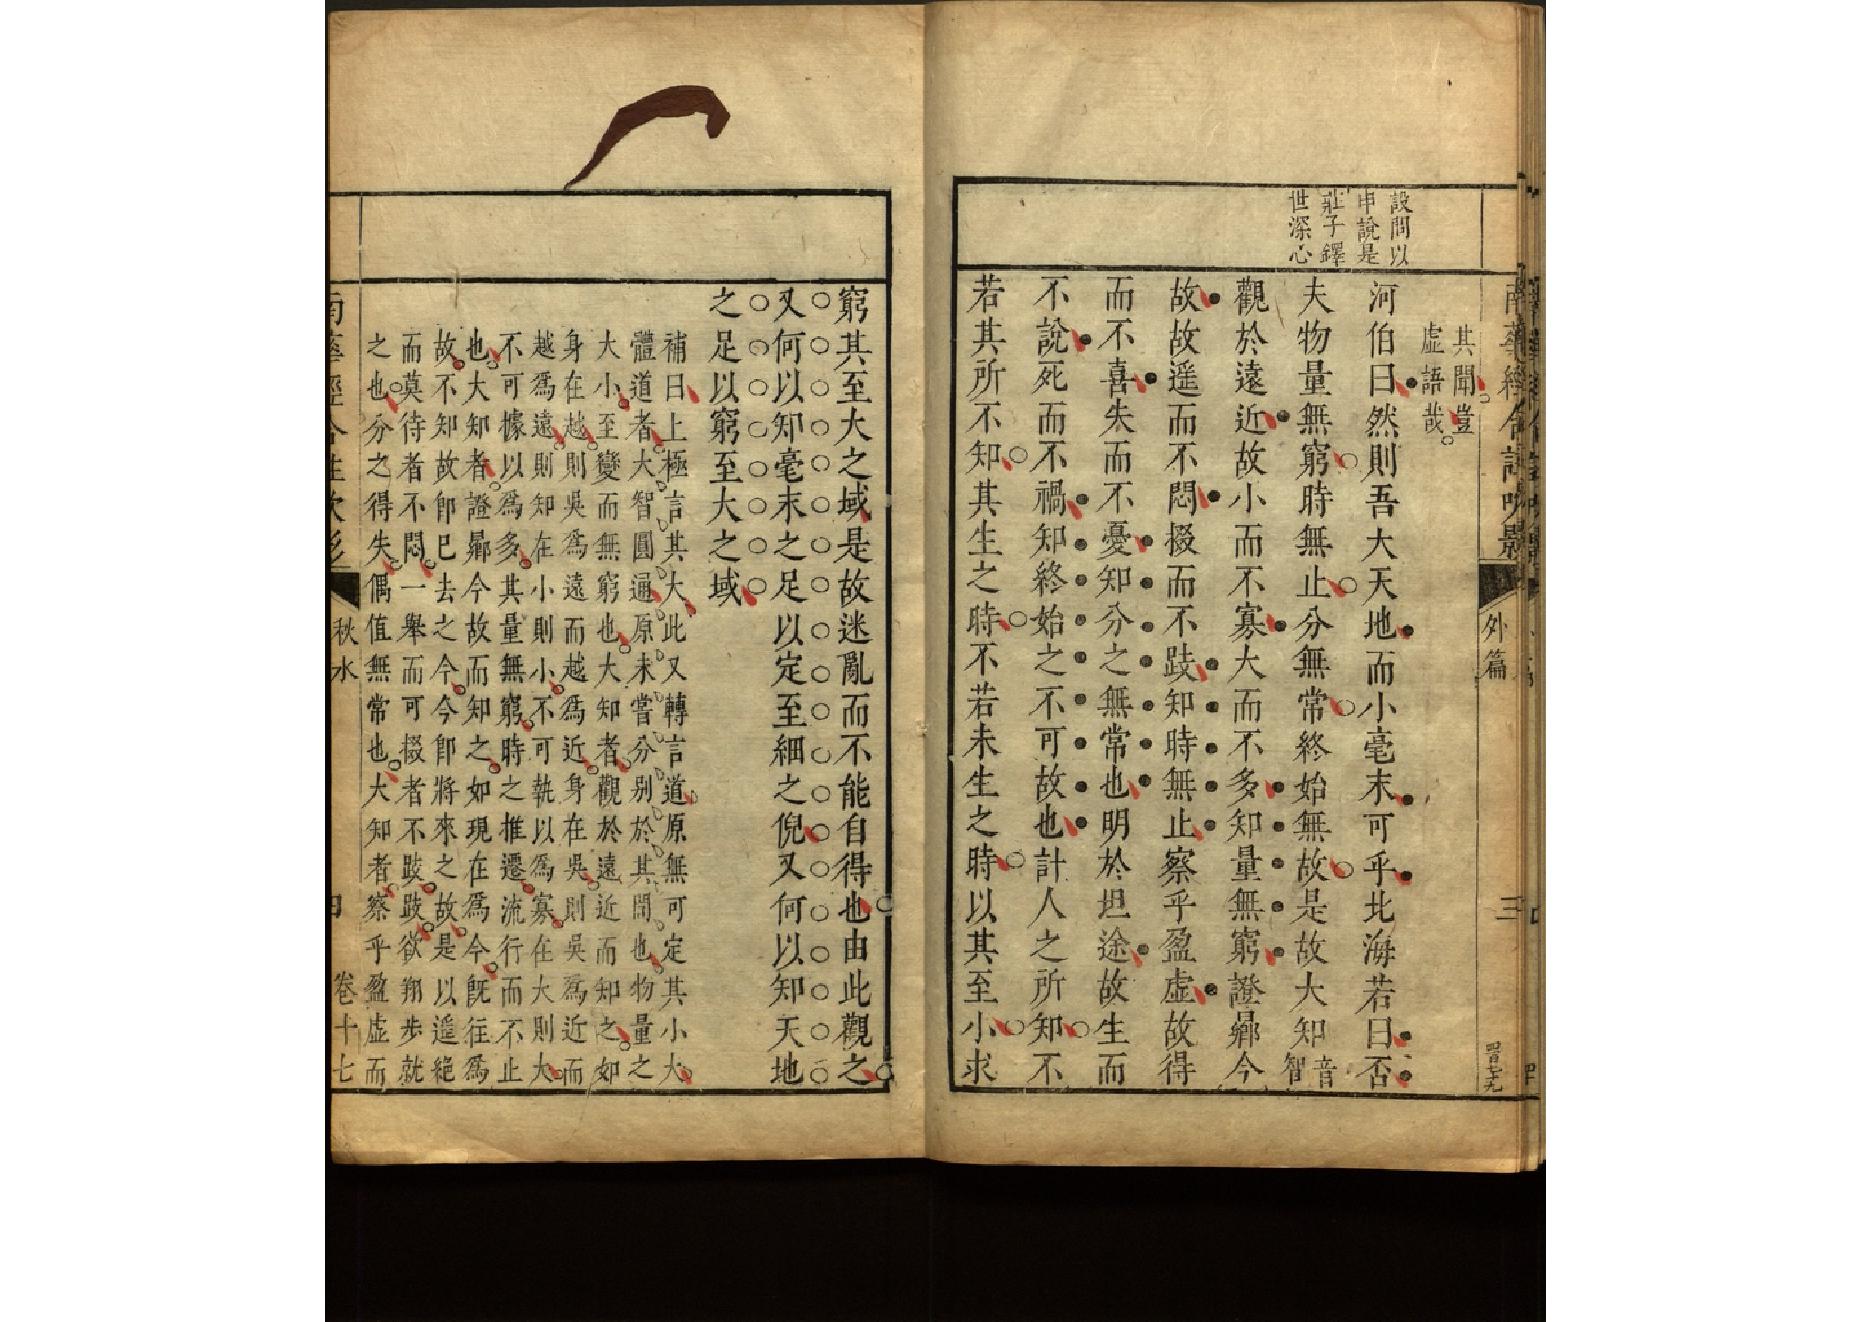 設問以
申說是
莊子鐸
世深心
外篇
三
其聞豈
虛語哉
河伯曰然則吾大天地而小毫末可乎北海若曰否
夫物量無窮時無止分無常終始無故是故大知音智
觀於遠近故小而不寡大而不多知量無窮證曏今
故故遥而不悶掇而不跂知時無止察乎盈虛故得
而不喜失而不憂知分之無常也明於坦途故生而
不說死而不禍知終始之不可故也計人之所知不
若其所不知其生之時不若未生之時以其至小求
窮其至大之域是故迷亂而不能自得也由此觀之
又何以知毫末之足以定至細之倪又何以知天地
之足以窮至大之域
補曰上極言其大此又轉言道原無可定其小大
體道者大智圓通原未嘗分別於其間也物量之
大小至變而無窮也大知者觀於遠近而知之如
身在越則吳爲遠而越爲近身在吳則吳爲近而
越爲遠則知在小則小不可執以爲寡在大則大
不可據以爲多其量無窮時之推遷流行而不止
也大知者證曏今故而知之如現在爲今旣往爲
故不知故卽已去之今今卽將來之故是以遥絕
而莫待者不悶一舉而可掇者不跂跂欲翔步就
之也分之得失偶值無常也大知者察乎盈虛而
秋水
卷十七